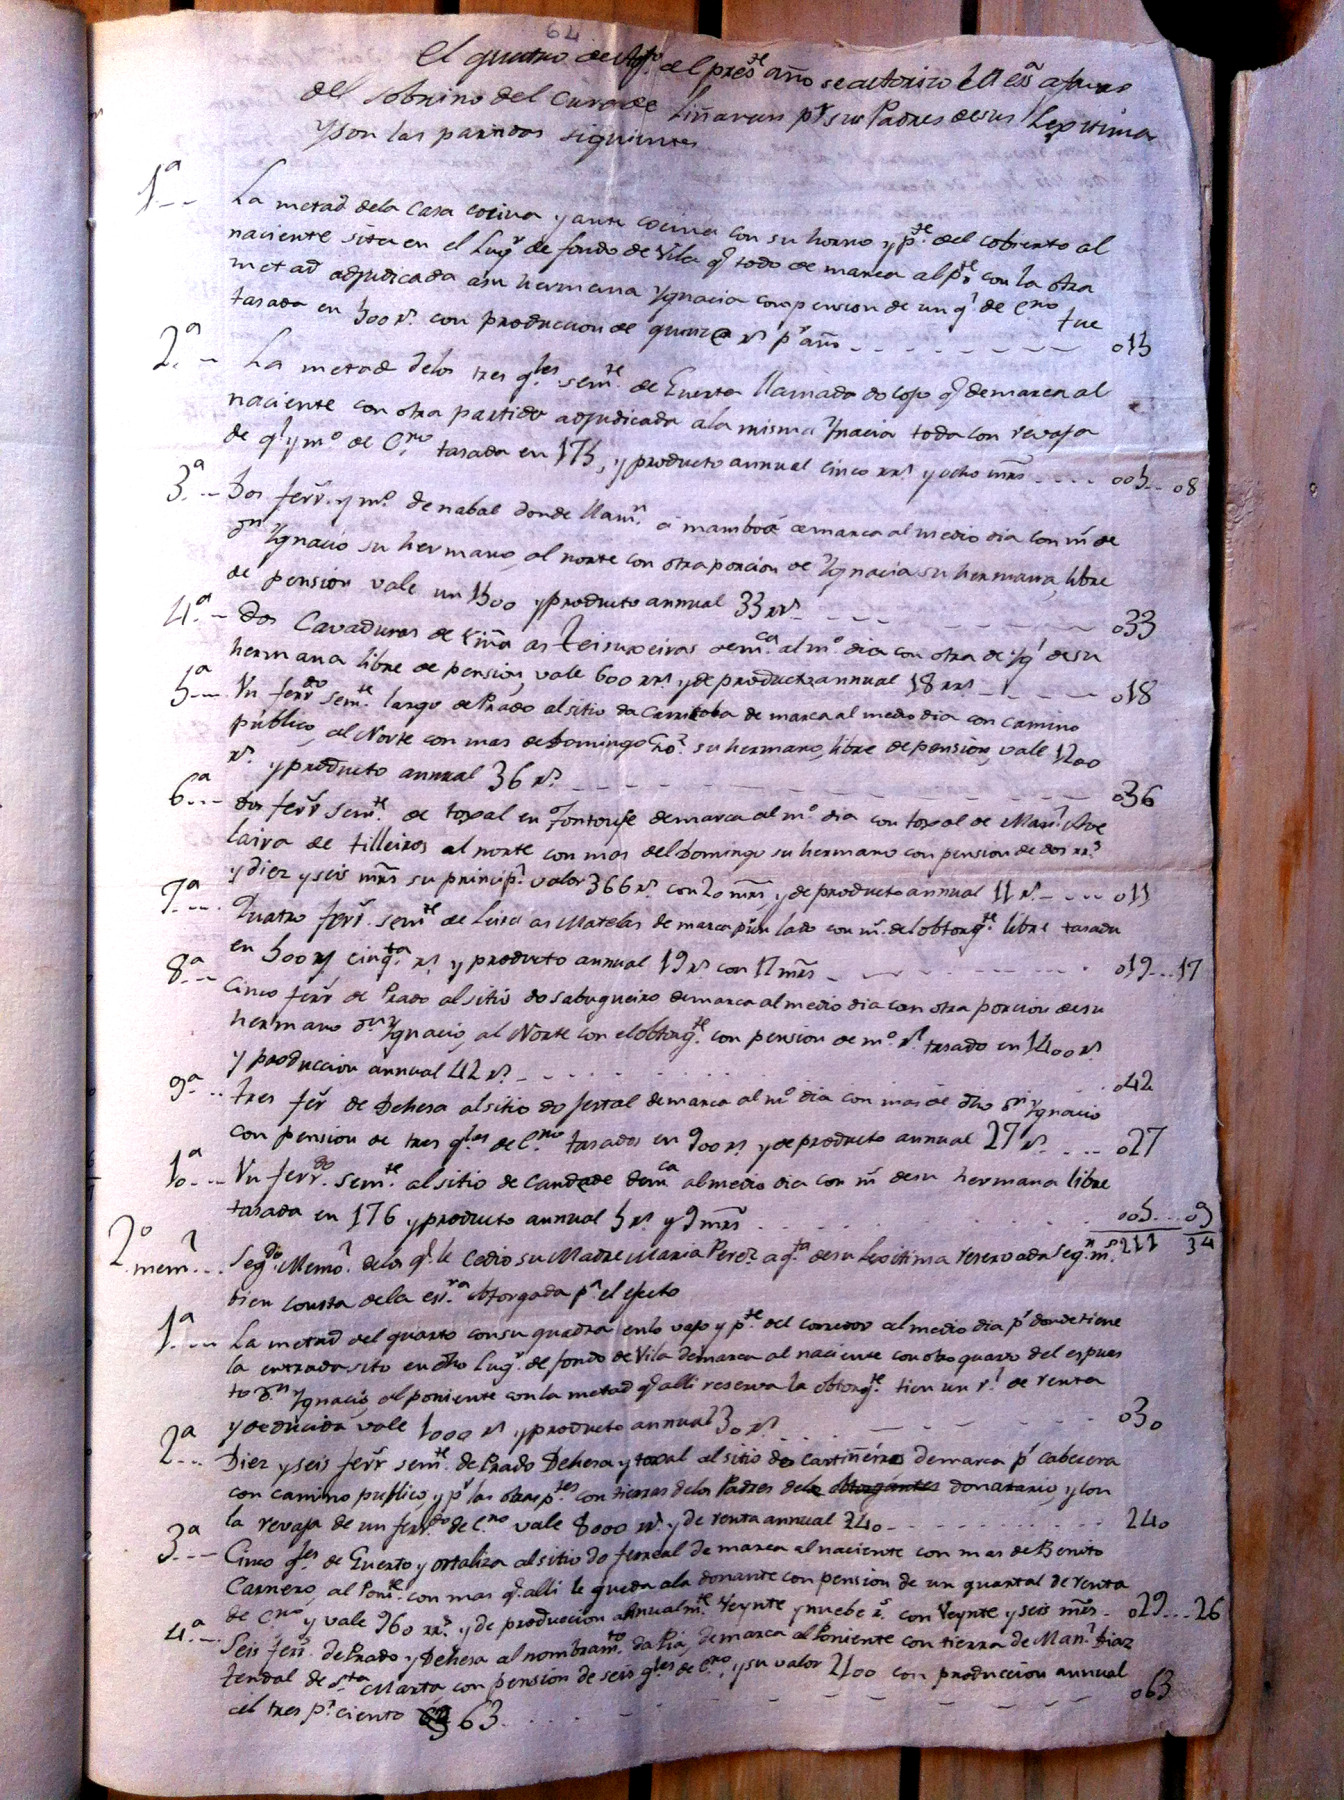 64
El quatro de Agto. del preste año se autorizo la esª a favor
del sobrino del Cura de Liñaran pr sus Padres de sus Legitimas
y son las partidas siguientes
1ª -- La metad dela Casa cocina y ante cocina con su horno y pte. del cobierto al
naciente sita en el Lugr de fondo de Vila q todo demarca al pte con la otra
metad adjudicada asu hermana Ygnacia con pension de un ql de Cno fue
tasada en 500 rs. con produccion de quince rs pr año - - - - - - 015
2ª -- La metad delos tres qles semte. de Guerta llamada do Cojo q demarca al
naciente con otra partida adjudicada ala misma Ygnacia toda con revaja
de ql y mº de Cno. tasada en 175, y producto annual cinco rrs y ocho mrs .... 005 .. 08
3ª -- Dos ferrs. y mº. de nabal donde llamn. a mamboa demarca al medio dia con ms de
Dn Ygnacio su hermano, al norte con otra porcion de Ygnacia su hermana, libre
de pension vale un 1500 y producto annual 33 rrs - - - - - 033
4ª -- Dos Cavaduras de viña as Teixoeiras demca al mº dia con otra de Ygª desu
hermana libre de pension, vale 600 rrs. y de producto annual 18 rrs - - - - 018
5ª -- Un ferrdo semte. largo de Prado al sitio da Carritoba demarca al medio dia con camino
publico, al Norte con mas de Domingo su hermano, libre de pension, vale 1200
rs. y producto annual 36 rs. - - - - - - - - 036
6ª -- Dos ferrs semte de toxal en Fontouse demarca al mº dia con toxal de Manl. Ave
laira de tilleiros al norte con mas del Domingo su hermano con pension de dos rrs
y diez y seis mrs su principl. valor 366 rs. con 20 mrs, y de producto annual 11 rs. - ... 011
7ª ... Quatro ferrs. semte de Leira as Matelas demarca pr un lado con ms. del obtorgte. libre tasada
en 500 y cinqta rs. y producto annual 19 rs. con 17 mrs - - - - - 019 ... 17
8ª -- Cinco ferrs de Prado al sitio do sabugueiro demarca al medio dia con otra porcion desu
hermano Dn Ygnacio, al Norte con el obtorgte. con pension de mº. rl. tasado en 1400 rs
y produccion annual 42 rs. - - - - - - 042
9ª .. Tres ferrs de Dehesa al sitio do fertal demarca al mº dia con mas de dho Dn Ygnacio
con pension de tres qles de Cno tasados en 900 rs. y de producto annual 27 rs. ... 027
10ª -- Un ferrdo. semte. al sitio de Candade demca al medio dia con ms desu hermana libre
tasada en 176 y producto annual 5 rs. y 9 mrs .... 005 ... 09
211 34
2º meml ... Segdo. Memol. delos q. le Cedio su Madre Maria Perez a qta desu Legitima reservada segn. ms.
bien consta dela esra. obtorgada pª el efecto
1ª -- La metad del quarto con su quadra en lo vajo y pte. del corredor al medio dia pr donde tiene
la entrada sito en dho Lugr. de fondo de Vila demarca al naciente con otro quarto del espues
to Dn Ygnacio, al poniente con la metad q alli reserva la obtorgte. tien un rl de renta
y deducida vale 1000 rs y producto annual 30 rs. - - - - 030
2ª -- Diez y seis ferrs semte. de Prado Dehesa y toxal al sitio do Cartiñeiro demarca pr cabecera
con camino publico, y pr las otras ptes con tierras delos Padres dela obtorgantes donatario, y con
la revaja de un ferrdo de Cno vale 8000 rrs. y de renta annual 240 - - - - 240
3ª -- Cinco qles. de Guerto y ortaliza al sitio do ferreal demarca al naciente con mas de Benito
Carnero, al Ponte. con mas q alli le queda ala donante con pension de un quartal de renta
de Cno y vale 960 rrs. y de produccion annualmte. Veynte y nuebe rs. con Veynte y seis mrs. - 029 ... 26
4ª -- Seis ferrs. de Prado y Dehesa al nombramto. da Pia, demarca al Poniente con tierra de Manl Diaz
tendal de Sta Marta con pension de seis qles de Cno, y su valor 2100 con produccion annual
al tres pr ciento 63 - - - - - 063